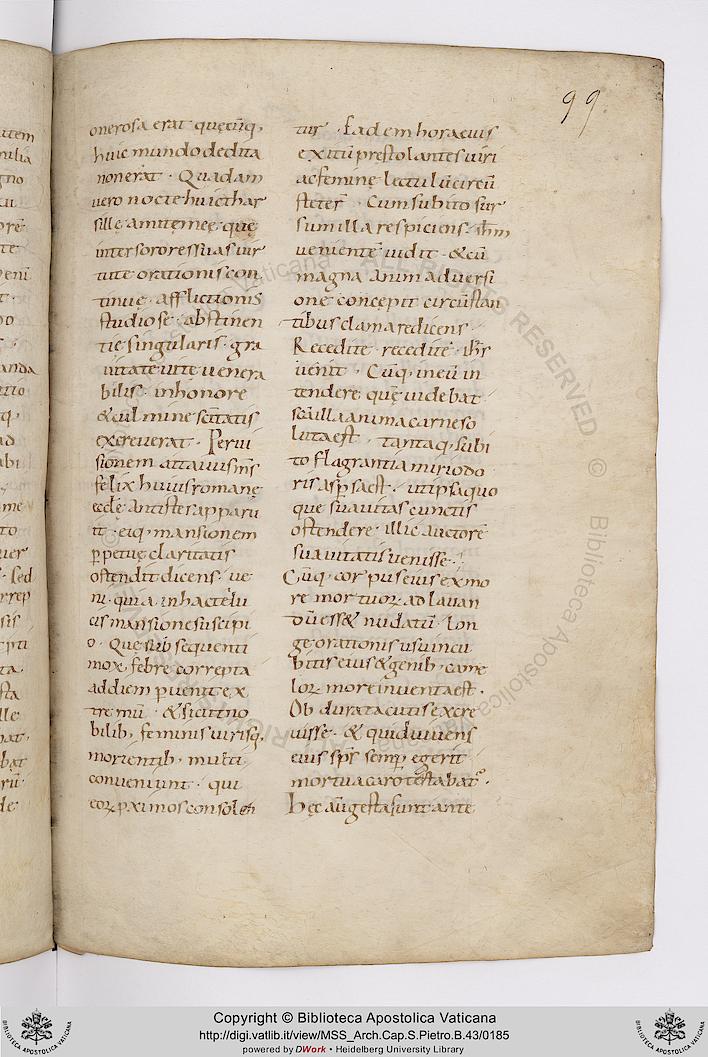 99
onerosa erat quęcūq,
huic mundo dedita
non erat · Quadam
vero nocte huic thar
sille amitę meę quę
inter sorores suas vir
tute orationis con
tinuę · afflictionis
studiosę · abstinen
tię singularis · gra
uitate uitę uenera
bilis · in honore
& culmine sc̄itatis
excreuerat · Per ui
sionem attauus m̄s
felix huius romanę
ecclę antistes apparu
it · eiq, mansionem
p petuę claritatis
ostendit dicens · ue
ni · quia in hac te lu
cis mansione suscipi
o · Quę subsequenti
mox febre correpta
ad diem puenit ex
tremū · & sicut no
bilib, feminis uirisq,
morientib, multi
conueniunt · qui
eoꝝ pximos consolen
tur · Eadem hora eius
exitū prestolantes uiri
ac feminę lectulū circū
steter̄ · Cum subito sur
sum illa respiciens · ih̄m
uenientē uidit · & cū
magna animaduersi
one concepit circūstan
tibus clamare dicens
Recedite · recedite · ih̄s
uenit · Cūq, in eū in
tendere quē uidebat
sc̄a illa anima carne so
luta est · tantaq, subi
to flagrantia miri odo
ris aspsa est · ut ipsa quo
que suauitas cunctis
ostendere illic auctorē
suauitatis uenisse ·
Cūq, corpus eius ex mo
re mortuoꝝ ad lauan
dū ess& nudatū · lon
gę orationis usu in cu
bitis eius & genib, came
loꝝ more inuenta est ·
Obdurata cutis excre
uisse · & quid uiuens
eius sp̄s semp egerit
mortua caro testabat᷑ ·
Hęc aūt gesta sunt ante
Copyright © Biblioteca Apostolica Vaticana
http://digi.vatlib.it/view/MSS_Arch.Cap.S.Pietro.B.43/0185
powered by DWork • Heidelberg University Library